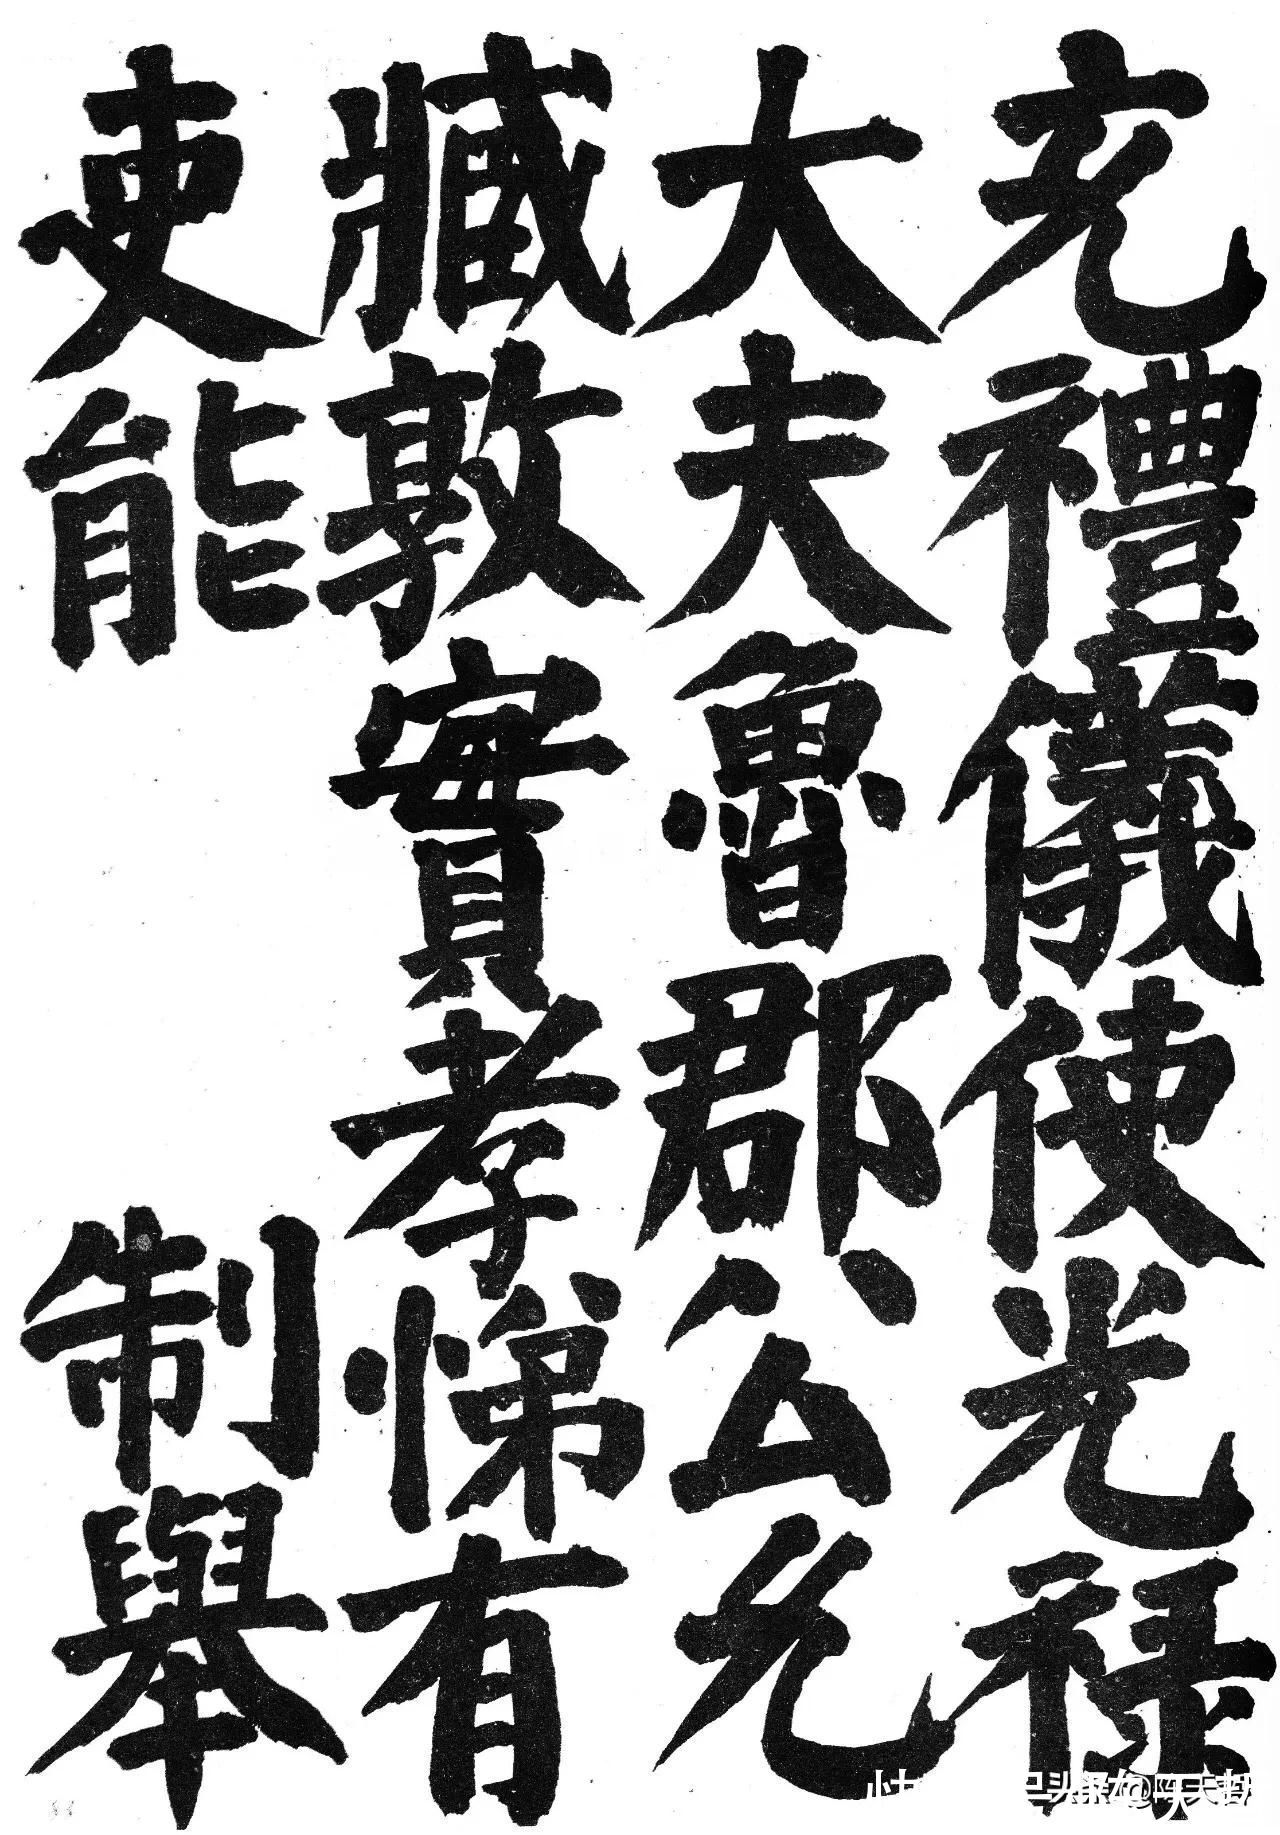 充禮儀使光祿
大夫魯郡公允
臧敦實孝悌有
吏能　制舉